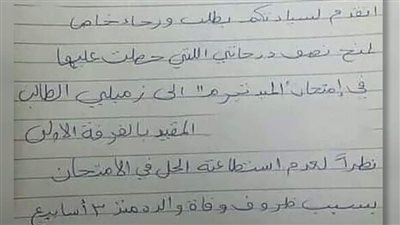 اتقدم لسيادتكم بطلب ورجاء خاص
لمنح نصف درجاتي اللتي حصلت عليها
في إمتحان "الميد تيرم" الى زميلي الطالب
المقيد بالفرقة الاولى
نظراً لعدم استطاعته الحل في الامتحان
بسبب ظروف وفاة والده منذ ٣ أسابيع